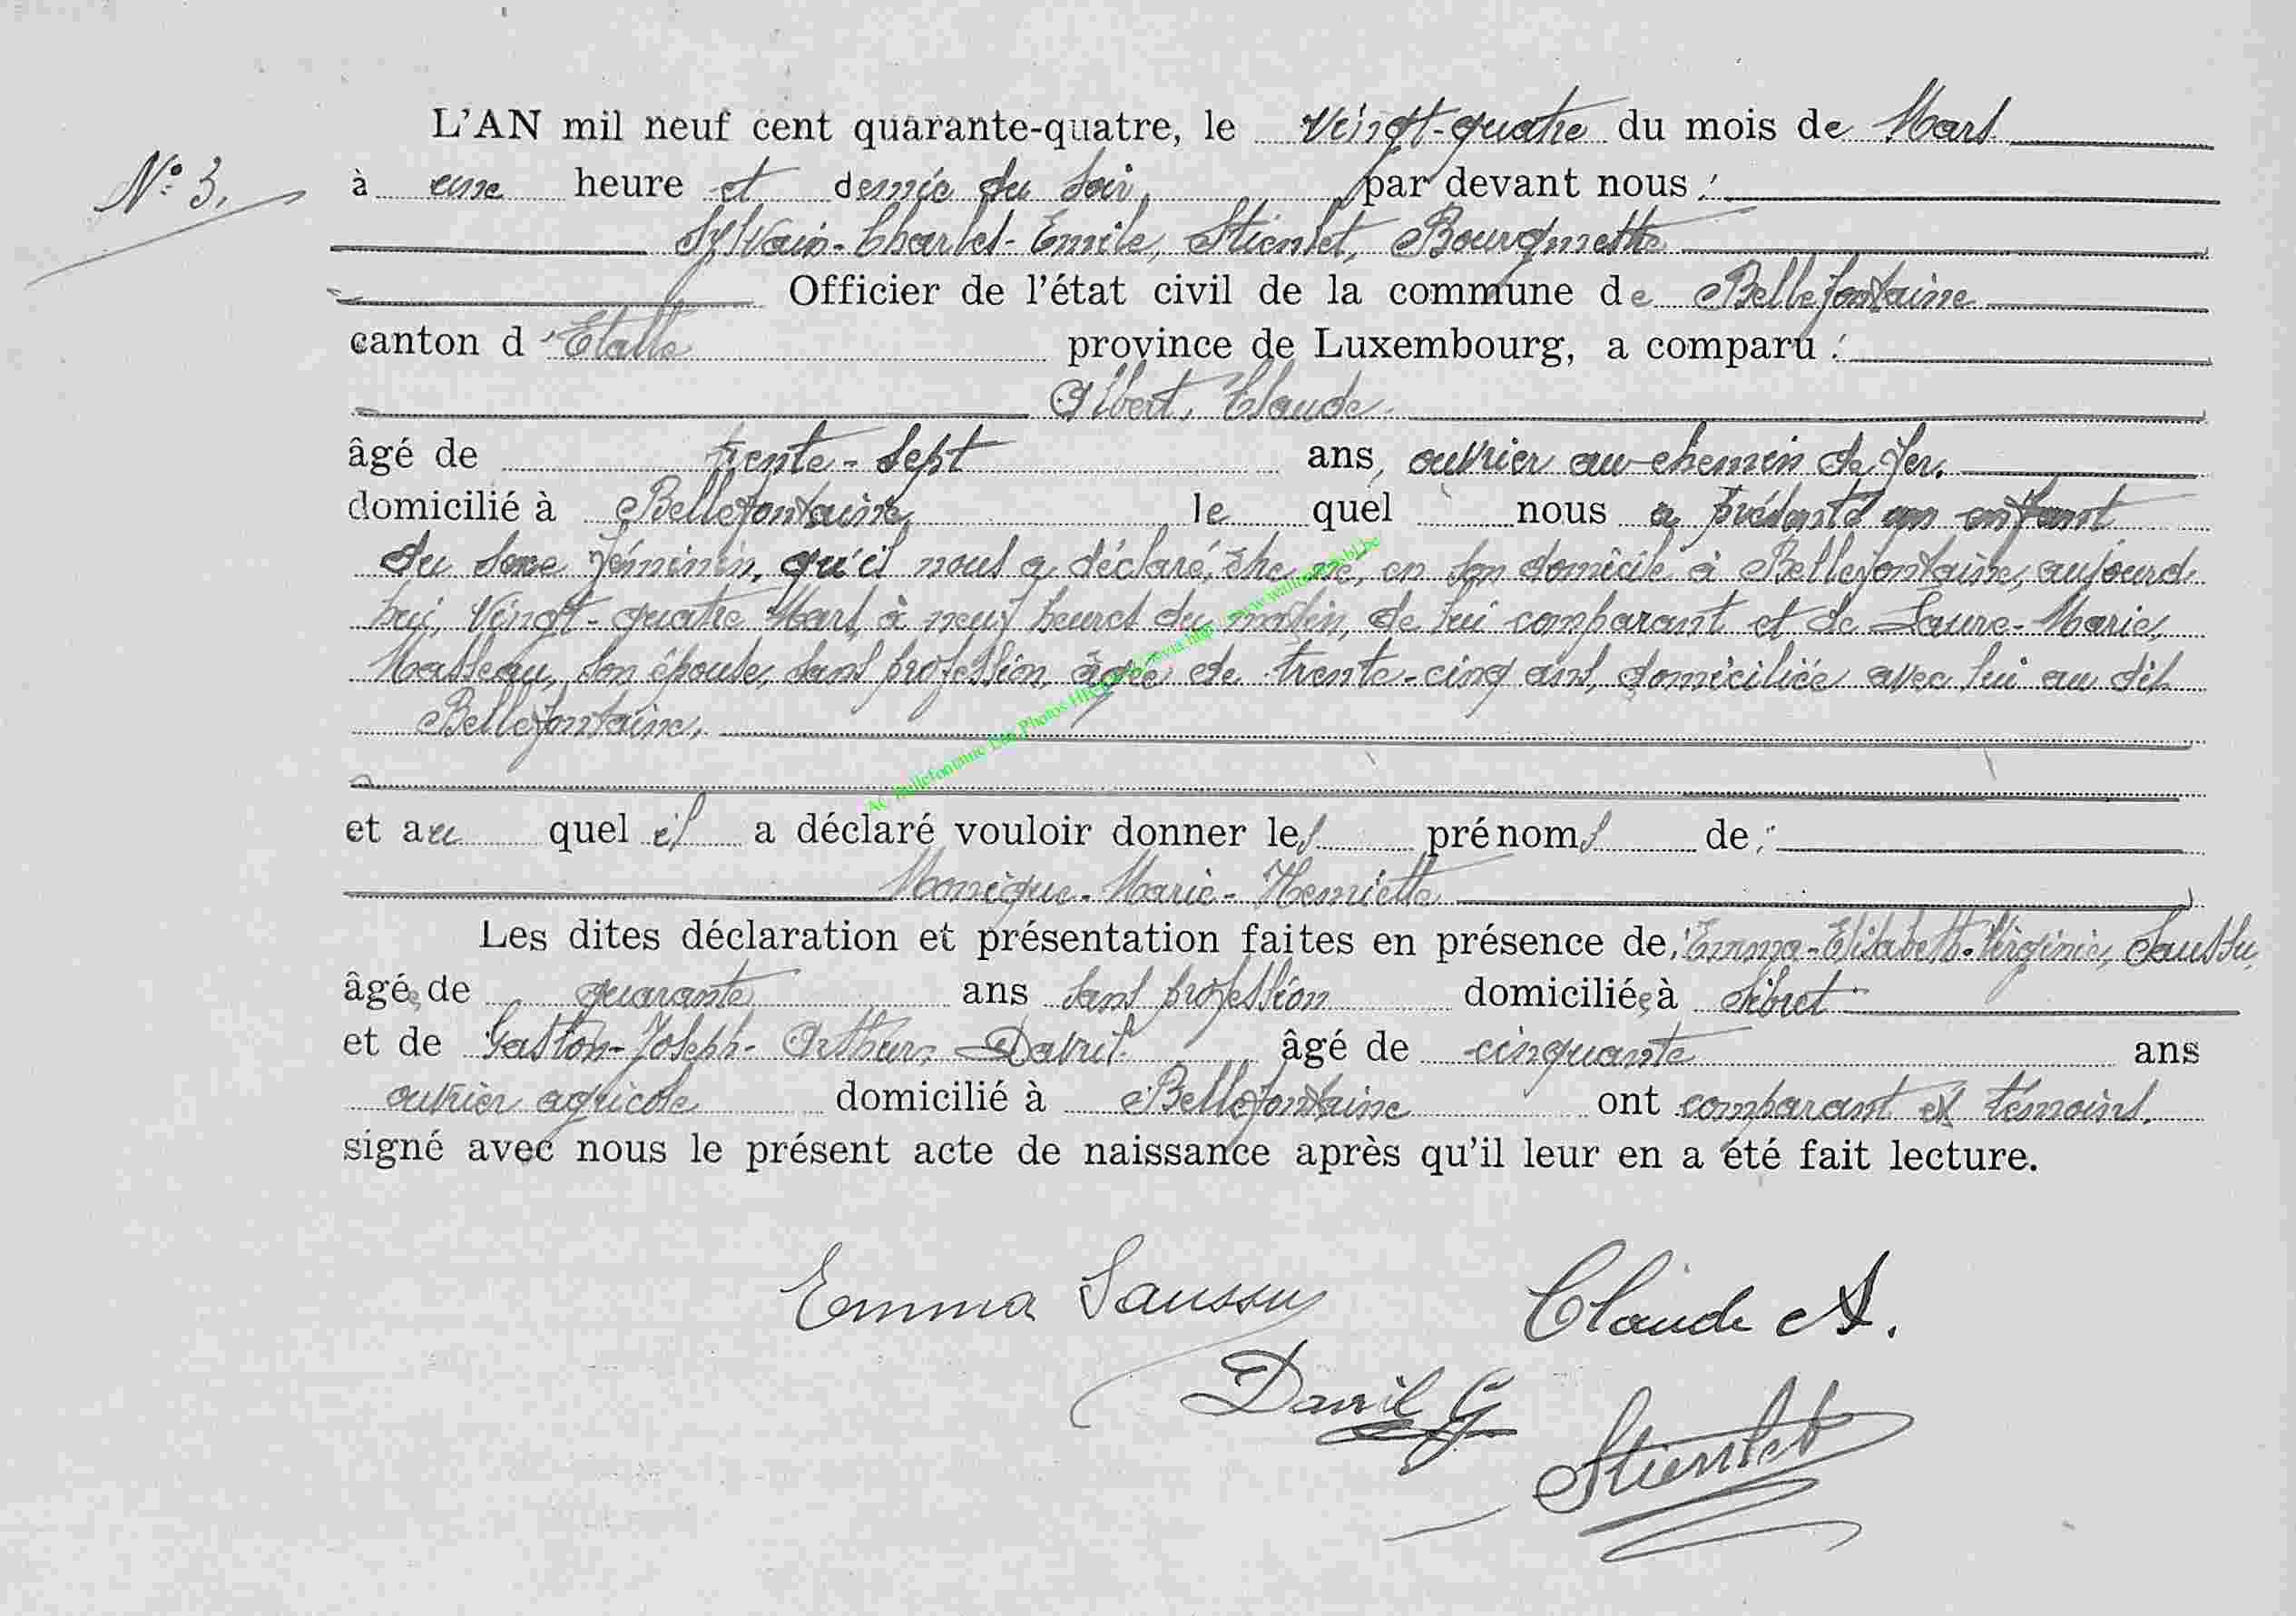 L'AN mil neuf cent quarante-quatre, le vingt-quatre du mois de Mars
N° 3.
à une heure et demie du soir, par devant nous :
Sylvain-Charles-Emile, Stienlet, Bourgmestre
Officier de l'état civil de la commune de Bellefontaine
canton d'Etalle province de Luxembourg, a comparu :
Albert, Claude
âgé de trente-sept ans, ouvrier au chemin de fer,
domicilié à Bellefontaine, le quel nous a présenté un enfant
du sexe féminin, qu'il nous a déclaré, être né, en son domicile à Bellefontaine, aujourd
hui, vingt-quatre Mars, à neuf heures du matin, de lui comparant et de Laure-Marie,
Masseau, son épouse, sans profession, âgée de trente-cinq ans, domiciliée avec lui au dit
Bellefontaine.
et au quel il a déclaré vouloir donner les prénoms de :
Monique-Marie-Henriette
Les dites déclaration et présentation faites en présence de Emma-Elisabeth-Virginie, Saussu,
âgée de quarante ans sans profession domiciliée à Sibret
et de Gaston-Joseph-Arthur, Davril âgé de cinquante ans
ouvrier agricole domicilié à Bellefontaine ont comparant et témoins,
signé avec nous le présent acte de naissance après qu'il leur en a été fait lecture.
Emma Saussu Claude A.
Davril G
Stienlet